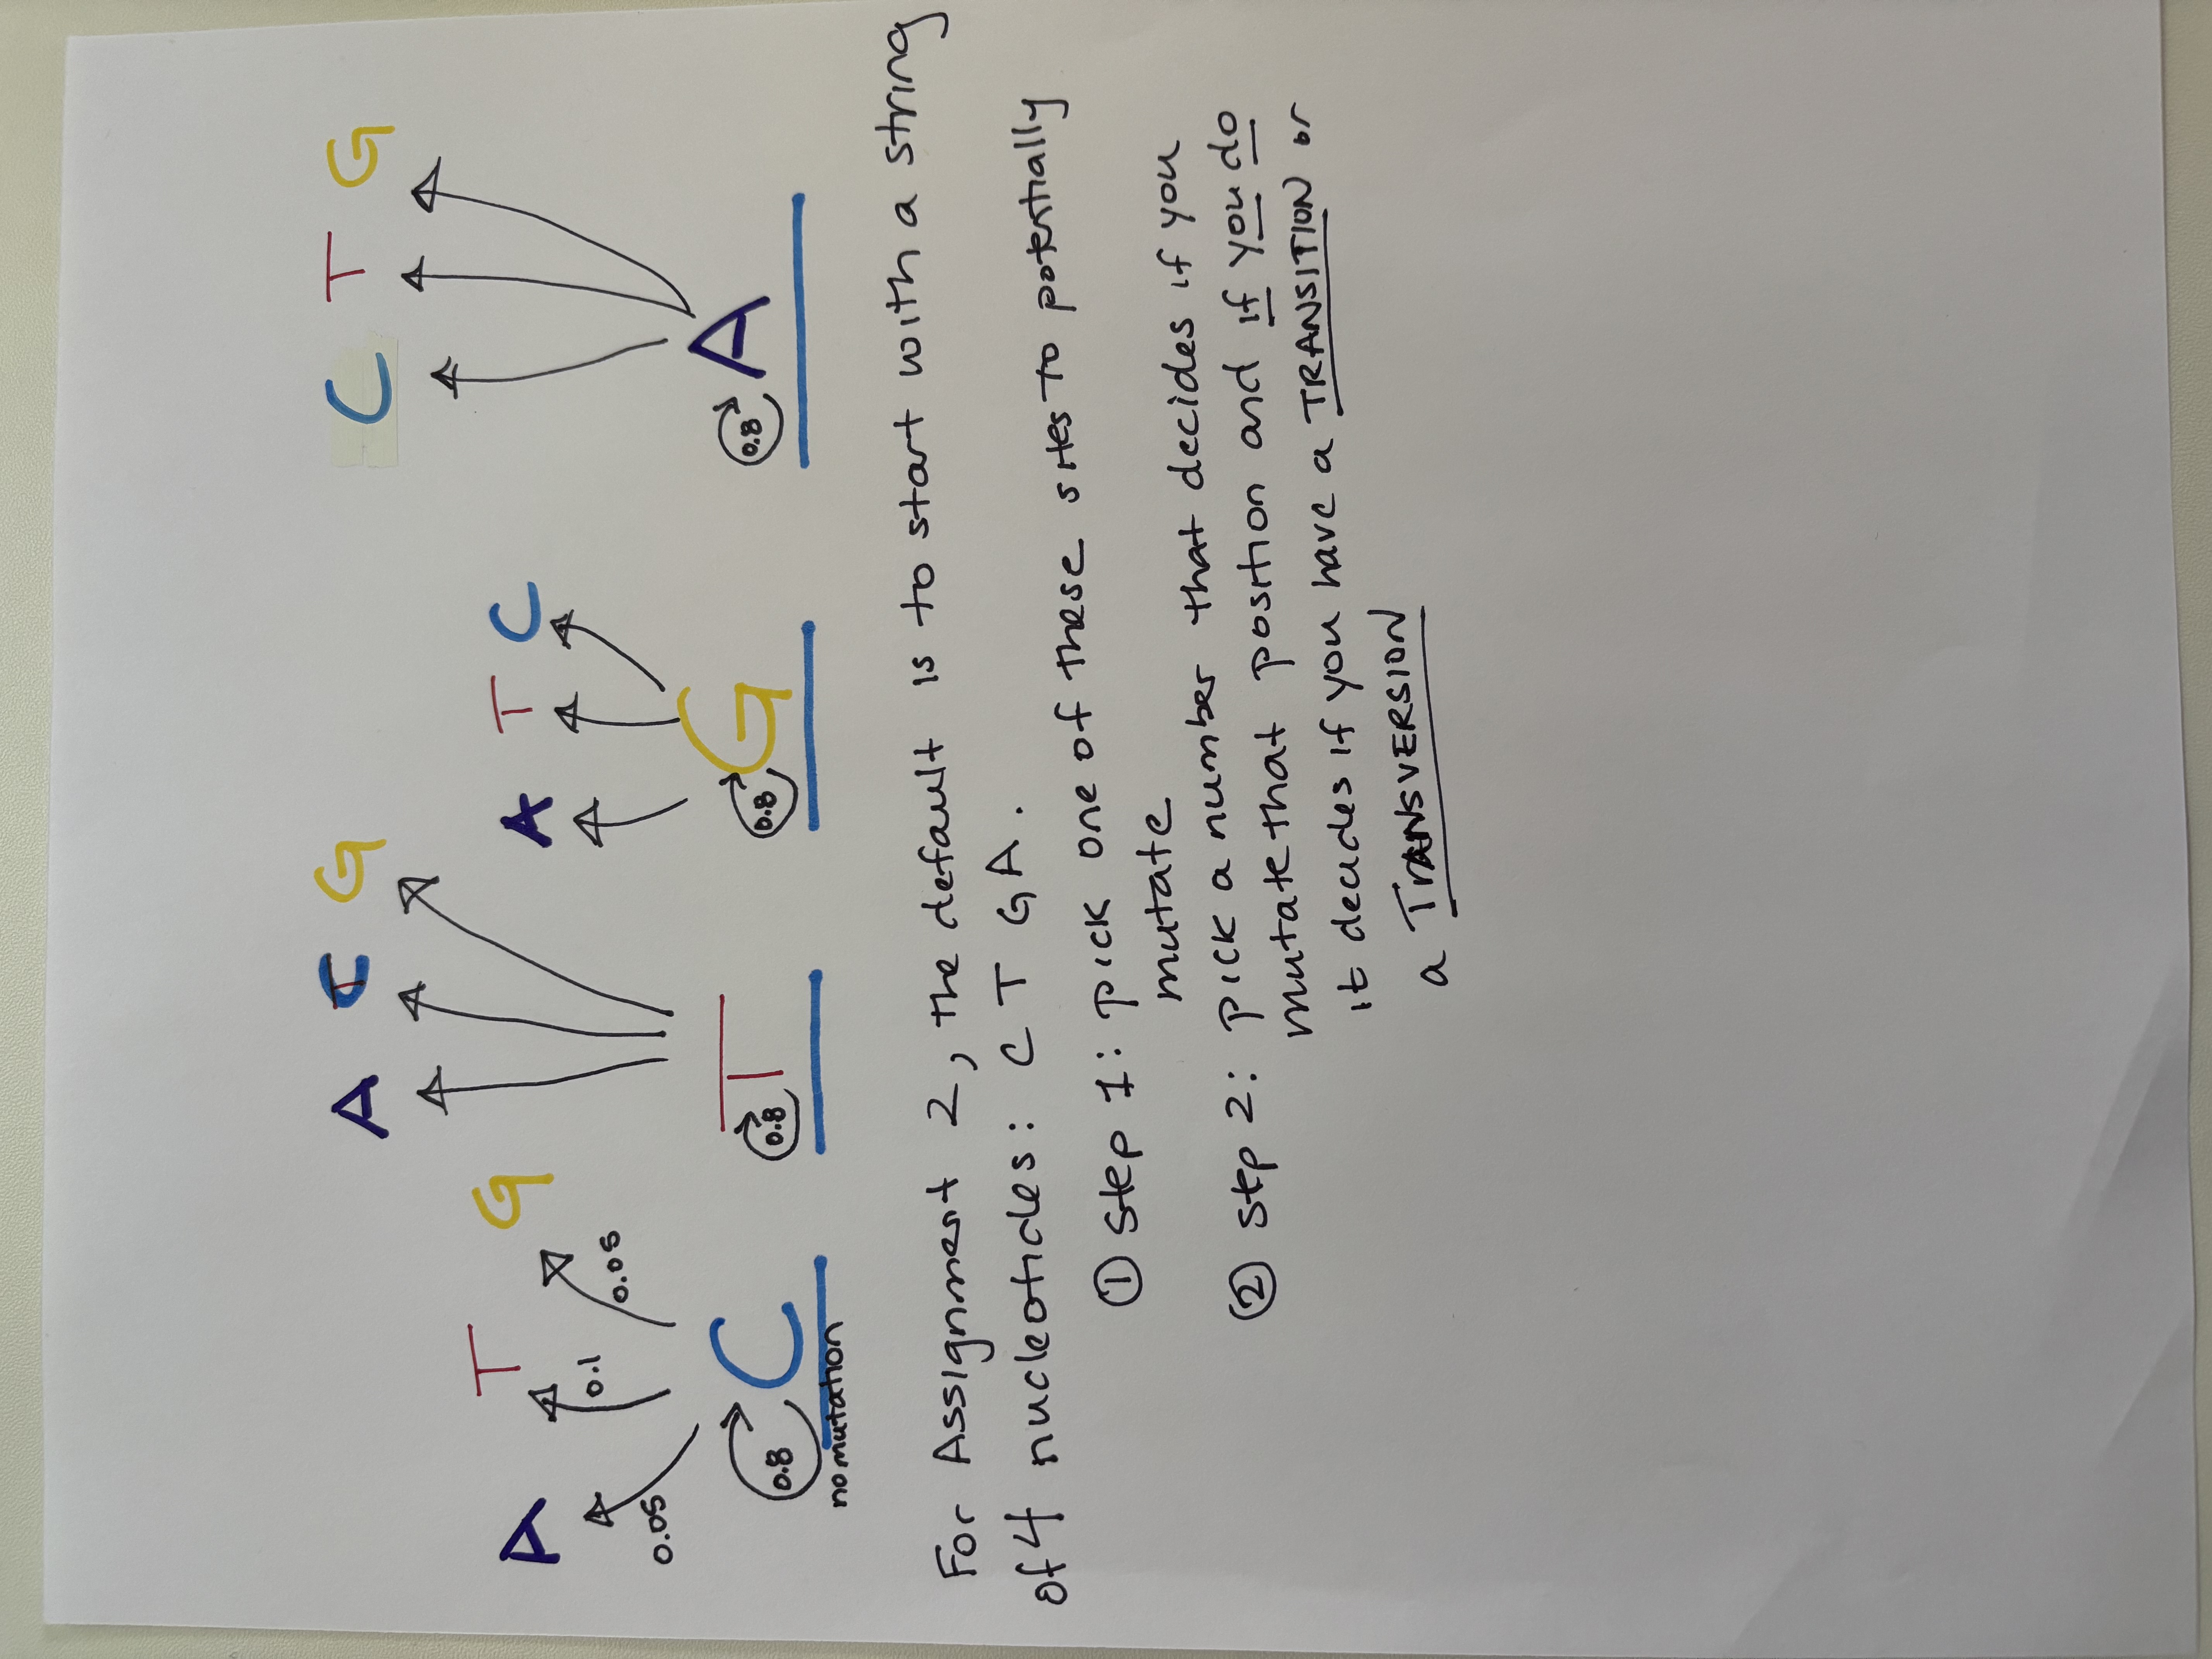 A C G
C T G
A T G
A T C
0.1
0.05
0.05
0.8 C 0.8 T 0.8 G 0.8 A
no mutation
For Assignment 2, the default is to start with a string
of 4 nucleotides: C T G A.
① step 1: pick one of these sites to potentially
mutate
② step 2: pick a number that decides if you
mutate that position and if you do
it decides if you have a TRANSITION or
a TRANSVERSION